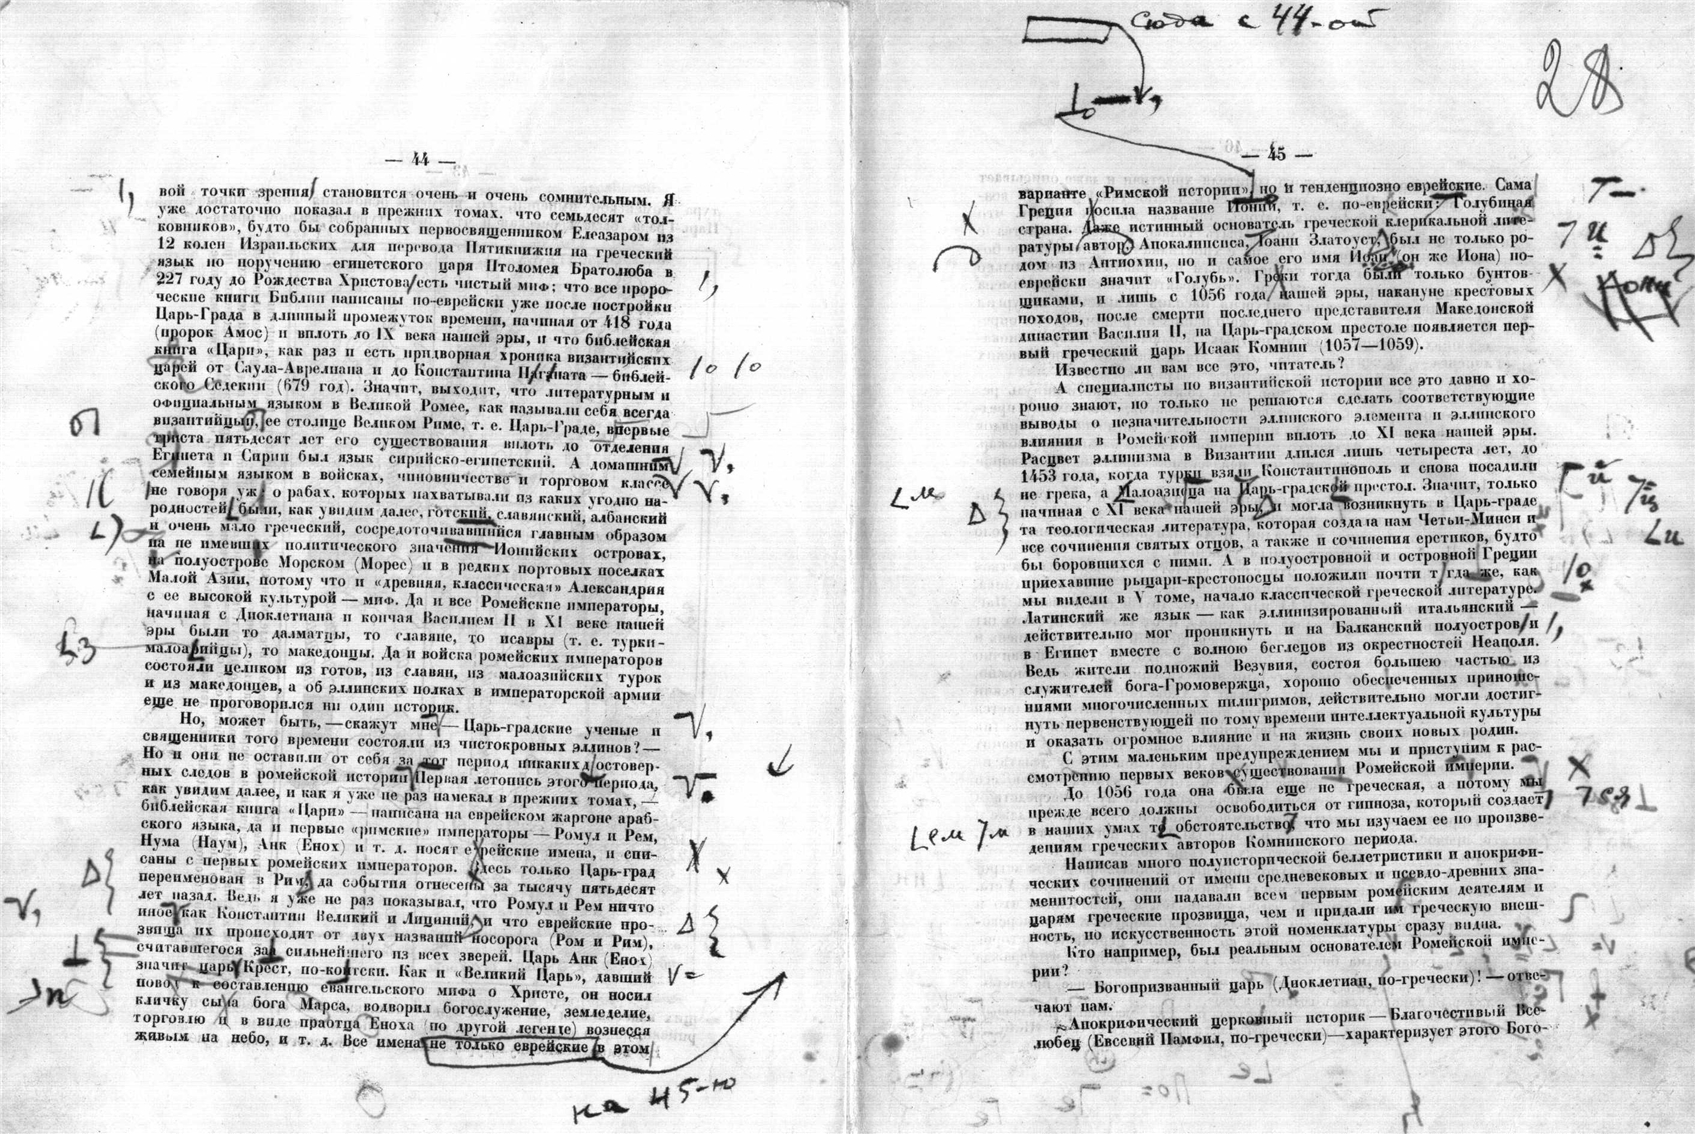 Сюда с 44-ой
28
— 44 —
вой точки зрения становится очень и очень сомнительным. Я
уже достаточно показал в прежних томах. что семьдесят «тол-
ковников», будто бы собранных первосвященником Елеазаром из
12 колен Израильских для перевода Пятикнижия на греческий
язык по поручению египетского царя Птоломея Братолюба в
227 году до Рождества Христова есть чистый миф; что все проро-
ческие книги Библии написаны по-еврейски уже после постройки
Царь-Града в длинный промежуток времени, начиная от 418 года
(пророк Амос) и вплоть до IX века нашей эры, и что библейская
книга «Цари», как раз и есть придворная хроника византийских
царей от Саула-Аврелиана и до Константина — библей-
ского Седекии (679 год). Значит, выходит, что литературным и
официальным языком в Великой Ромее, как называли себя всегда
византийцы, ее столице Великом Риме, т. е. Царь-Граде, впервые
триста пятьдесят лет его существования вплоть до отделения
Египета и Сирии был язык сирийско-египетский. А домашним
семейным языком в войсках, чиновничестве и торговом классе
не говоря уж о рабах, которых нахватывали из каких угодно на-
родностей были, как увидим далее, готский, славянский, албанский
и очень мало греческий, сосредоточивавшийся главным образом
на не имевших политического значения Ионийских островах,
на полуострове Морском (Морее) и в редких портовых поселках
Малой Азии, потому что и «древняя, классическая» Александрия
с ее высокой культурой — миф. Да и все Ромейские императоры,
начиная с Диоклетиана и кончая Василием II в XI веке нашей
эры были то далматцы, то славяне, то исавры (т. е. турки-
то македонцы. Да и войска ромейских императоров
состояли целиком из готов, из славян, из малоазийских турок
и из македонцев, а об эллинских полках в императорской армии
еще не проговорился ни один историк.
Но, может быть, — скажут мне — Царь-градские ученые и
священники того времени состояли из чистокровных эллинов? —
Но и они не оставили от себя за тот период никаких достовер-
ных следов в ромейской истории Первая летопись этого периода,
как увидим далее, и как я уже не раз намекал в прежних томах, —
библейская книга «Цари» — написана на еврейском жаргоне араб-
ского языка, да и первые «римские» императоры — Ромул и Рем,
Нума (Наум), Анк (Енох) и т. д. носят еврейские имена, и спи-
саны с первых ромейских императоров. Здесь только Царь-град
переименован в Рим, да события отнесены за тысячу пятьдесят
лет назад. Ведь я уже не раз показывал, что Ромул и Рем ничто
иное как Константин Великий и Лициний, и что еврейские про-
звища их происходят от двух названий носорога (Ром и Рим),
считавшегося за сильнейшего из всех зверей. Царь Анк (Енох)
значит царь Крест, по-коптски. Как и «Великий Царь», давший
повод к составлению евангельского мифа о Христе, он носил
кличку сына бога Марса, водворил богослужение, земледелие,
торговлю и в виде праотца Еноха (по другой легенде) вознесся
живым на небо, и т. д. Все имена не только еврейские в этом
на 45-ю
— 45 —
варианте «Римской истории», но и тенденциозно еврейские. Сама
Греция носила название Ионии, т. е. по-еврейски: Голубиная
страна. Даже истинный основатель греческой клерикальной лите-
ратуры автор Апокалипсиса, Иоанн Златоуст, был не только ро-
дом из Антиохии, но и самое его имя Иоан (он же Иона) по-
еврейски значит «Голубь». Греки тогда были только бунтов-
щиками, и лишь с 1056 года нашей эры, накануне крестовых
походов, после смерти последнего представителя Македонской
династии Василия II, на Царь-градском престоле появляется пер-
вый греческий царь Исаак Комнин (1057—1059).
Известно ли вам все это, читатель?
А специалисты по византийской истории все это давно и хо-
рошо знают, но только не решаются сделать соответствующие
выводы о незначительности эллинского элемента и эллинского
влияния в Ромейской империи вплоть до XI века нашей эры.
Расцвет эллинизма в Византии длился лишь четыреста лет, до
1453 года, когда турки взяли Константинополь и снова посадили
не грека, а Малоазийца на Царь-градский престол. Значит, только
начиная с XI века нашей эры и могла возникнуть в Царь-граде
та теологическая литература, которая создала нам Четьи-Минеи и
все сочинения святых отцов, а также и сочинения еретиков, будто
бы боровшихся с ними. А в полуостровной и островной Греции
приехавшие рыцари-крестоносцы положили почти тогда же, как
мы видели в V томе, начало классической греческой литературе.
Латинский же язык — как эллинизированный итальянский —
действительно мог проникнуть и на Балканский полуостров и
в Египет вместе с волною беглецов из окрестностей Неаполя.
Ведь жители подножий Везувия, состоя большею частью из
служителей бога-Громовержца, хорошо обеспеченных приноше-
ниями многочисленных пилигримов, действительно могли достиг-
нуть первенствующей по тому времени интеллектуальной культуры
и оказать огромное влияние и на жизнь своих новых родин.
С этим маленьким предупреждением мы и приступим к рас-
смотрению первых веков существования Ромейской империи.
До 1056 года она была еще не греческая, а потому мы
прежде всего должны освободиться от гипноза, который создает
в наших умах то обстоятельство, что мы изучаем ее по произве-
дениям греческих авторов Комнинского периода.
Написав много полуисторической беллетристики и апокрифи-
ческих сочинений от имени средневековых и псевдо-древних зна-
менитостей, они надавали всем первым ромейским деятелям и
царям греческие прозвища, чем и придали им греческую внеш-
ность, но искусственность этой номенклатуры сразу видна.
Кто например, был реальным основателем Ромейской импе-
рии?
— Богопризванный царь (Диоклетиан, по-гречески)! — отве-
чают нам.
Апокрифический церковный историк — Благочестивый Все-
любец (Евсевий Памфил, по-гречески)—характеризует этого Бого-